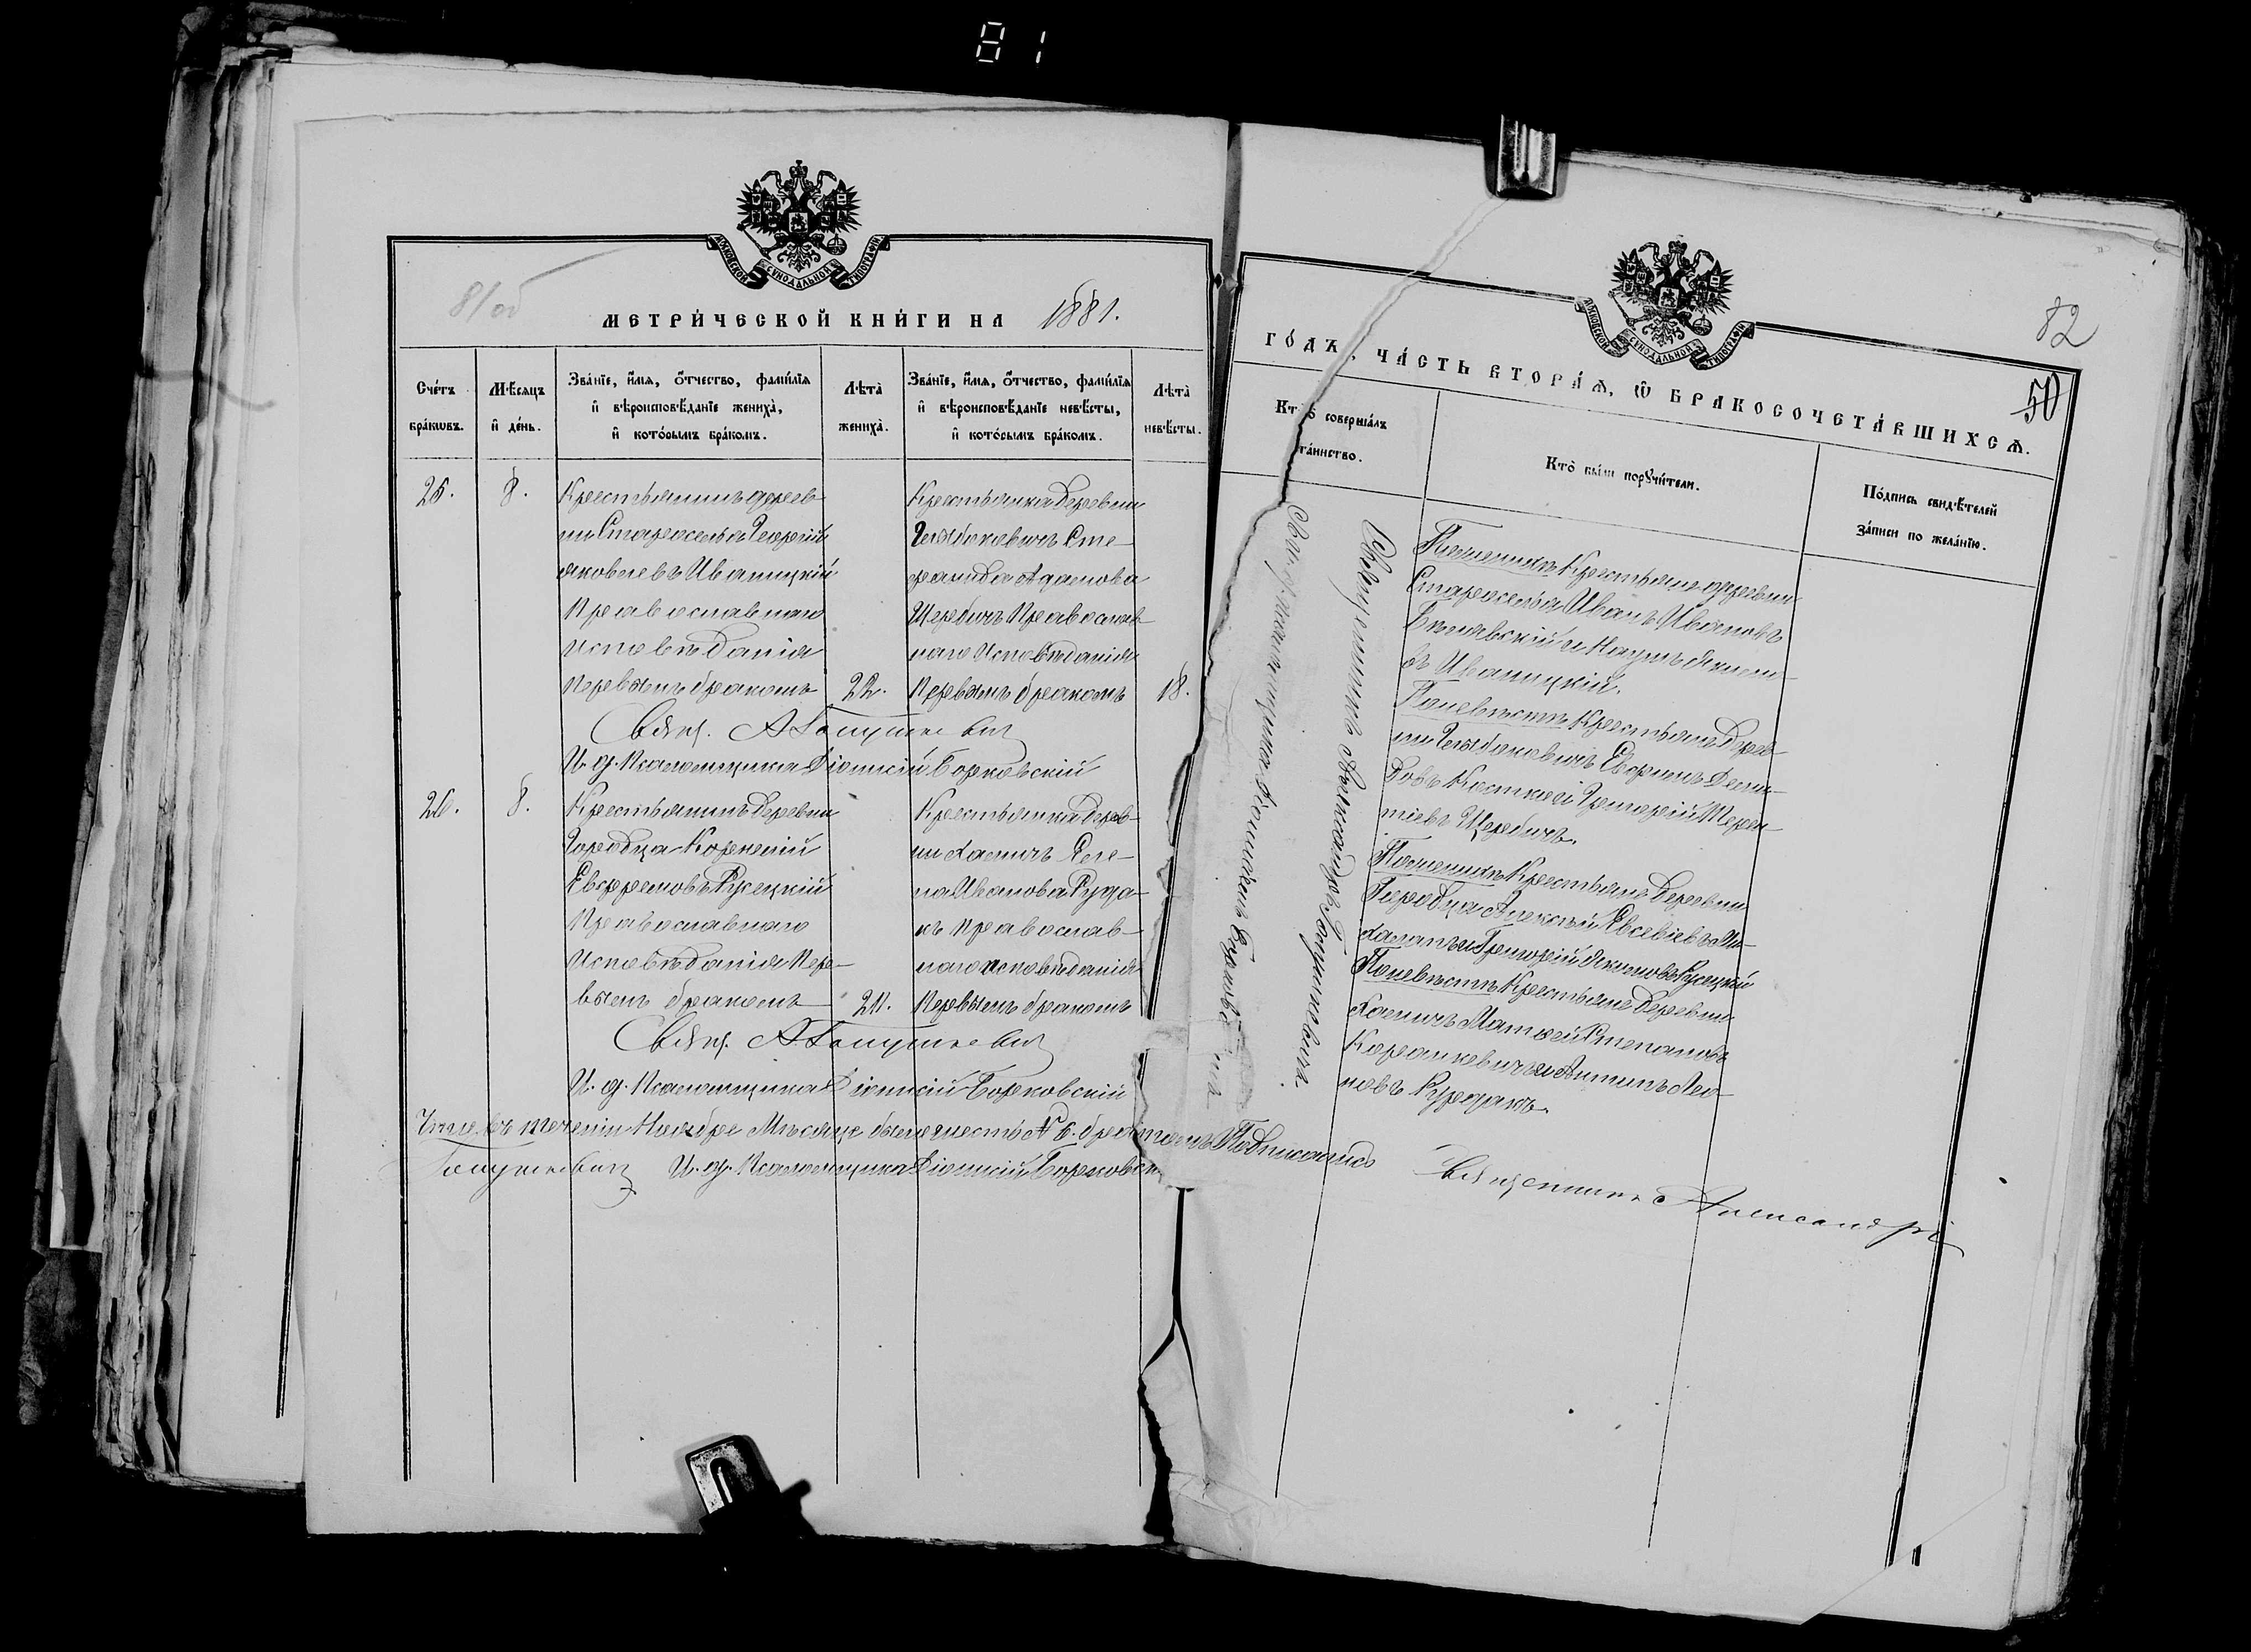 81
МОСКОВСКОЙ СѴНОДАЛЬНОЙ ТИПОГРАФІИ
81об
МЕТРИ́ЧЕСКОЙ КНИ́ГИ НА 1881.
Сче́тъ бра́кѡвъ.
Мѣ́сяцъ и҆ де́нь.
Зва́нїе, и҆́мя, ѻ҆́тчество, фамѝлїя
и҆ вѣроисповѣ́данїе жениха̀,
и҆ кото́рымъ бра́комъ.
Лѣта̀ жениха̀.
Зва́нїе, и҆́мя, ѻ҆́тчество, фамѝлїя
и҆ вѣроисповѣ́данїе невѣ́сты,
и҆ кото́рымъ бра́комъ.
Лѣта̀ невѣ́сты.
25.
8.
Крестьянинъ дерев
ни Староселья Георгій
Яковлевъ Иваницкій
Православнаго
исповѣданія
первымъ бракомъ
22.
Крестьянка деревни
Сте-
фанида Адамова
Щербичъ Православ-
наго исповѣданія
первымъ бракомъ
18.
Свящ. А Гапушкевич
И. д. Псаломщика Діонисій Борковскій
26.
8.
Крестьянинъ деревни
Городца Корнелій
Евфремовъ Русецкій
Православнаго
исповѣданія пер-
вымъ бракомъ
Крестьянка дерев-
ни Еле-
на Иванова Рудо-
къ православ-
наго исповѣданія
первымъ бракомъ
Свящ. А Гапушкевич
И. д. Псаломщика Діонисій Борковскій
Итого въ теченіи Ноября Мѣсяца было шесть № 6. Подписались
Гапушкевич И. д. Псаломщика Діонисій Борковск
МОСКОВСКОЙ СѴНОДАЛЬНОЙ ТИПОГРАФІИ
82
50
ГО́ДЪ, ЧА́СТЬ ВТОРА́Я, Ѡ҆ БРАКОСОЧЕТА́ВШИХСЯ.
Кто̀ соверша́лъ
та́инство.
Кто̀ бы́ли порꙋчи́тели.
По́дпись свидѣ́телей
за́писи по жела́нїю.
Священникъ Александръ Гапушкевичъ.
По женихѣ Крестьяне деревни
Староселья Иванъ Ивановъ
и Наумъ
въ Иваницкій.
По невѣстѣ Крестьяне дерев-
ни
Григорій Терен-
тіевъ Щербичъ.
По женихѣ Крестьяне деревни
Городца Алексѣй Евсевіевъ
и Григорій Якимовъ Русецкій
По невѣстѣ Крестьяне деревни
Матвей Степановъ
и Антипъ Лео-
новъ
Священникъ Александръ